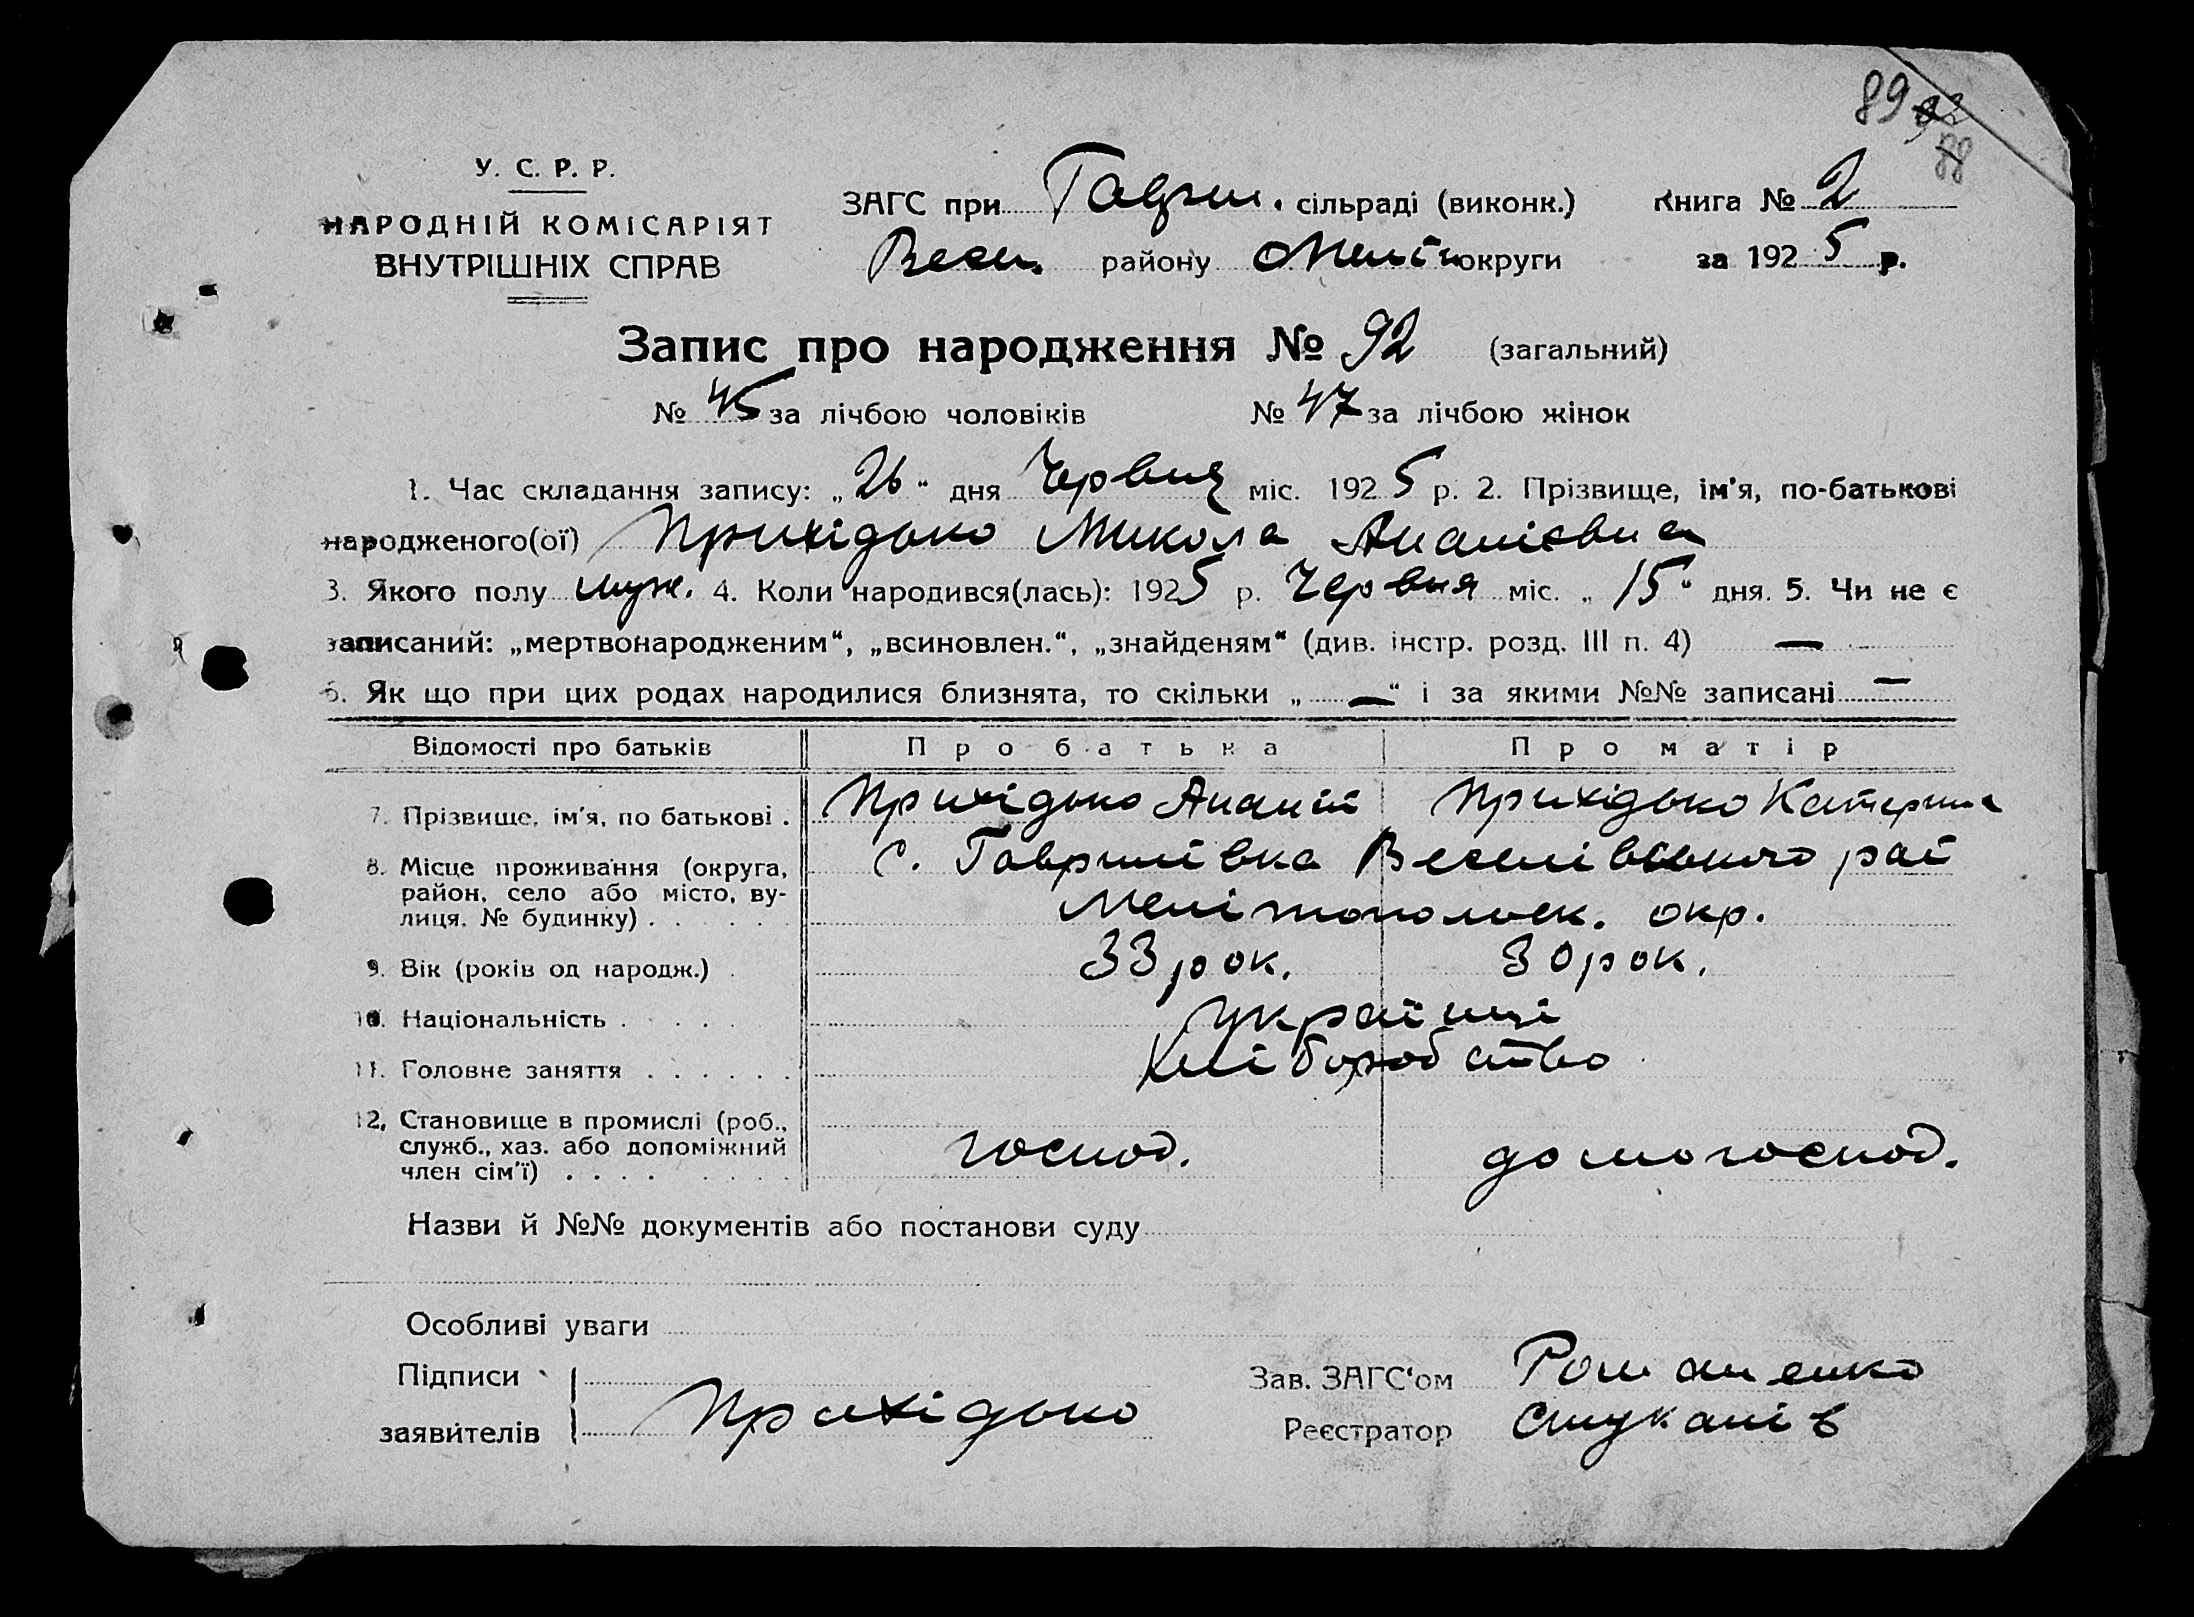 89 92
88
У. С. Р. Р.
НАРОДНІЙ КОМІСАРІЯТ
ВНУТРІШНІХ СПРАВ
ЗАГС при Гаврил. сільраді (виконк.) Книга № 2
Весел. району Меліт округи за 1925 р.
Запис про народження № 92 (загальний)
№ 45 за лічбою чоловіків № 47 за лічбою жінок
1. Час складання запису: „26“ дня Червня міс. 1925 р. 2. Прізвище, ім'я, по-батькові
народженого(ої) Прихідько Микола Ананієвич
3. Якого полу муж. 4. Коли народився(лась): 1925 р. Червня міс. „15“ дня. 5. Чи не є
записаний: „мертвонародженим“, „всиновлен.“, „знайденям“ (див. інстр. розд. III п. 4) —
6. Як що при цих родах народилися близнята, то скільки „—“ і за якими №№ записані —
Відомості про батьків Про батька Про матір
7. Прізвище, ім'я, по батькові . Прихідько Ананій Прихідько Катерина
8. Місце проживання (округа, с. Гаврилівка Веселівського рай
район, село або місто, ву-
лиця, № будинку) . Мелітопольск. окр.
9. Вік (років од народж.) . 33 рок. 30 рок.
10. Національність . українці
11. Головне заняття . Хліборобство
12. Становище в промислі (роб.,
служб., хаз. або допоміжний господ. домогоспод.
член сім'ї) .
Назви й №№ документів або постанови суду
Особливі уваги
Підписи Зав. ЗАГС'ом Романенко
заявителів Прихідько Реєстратор Стуканів